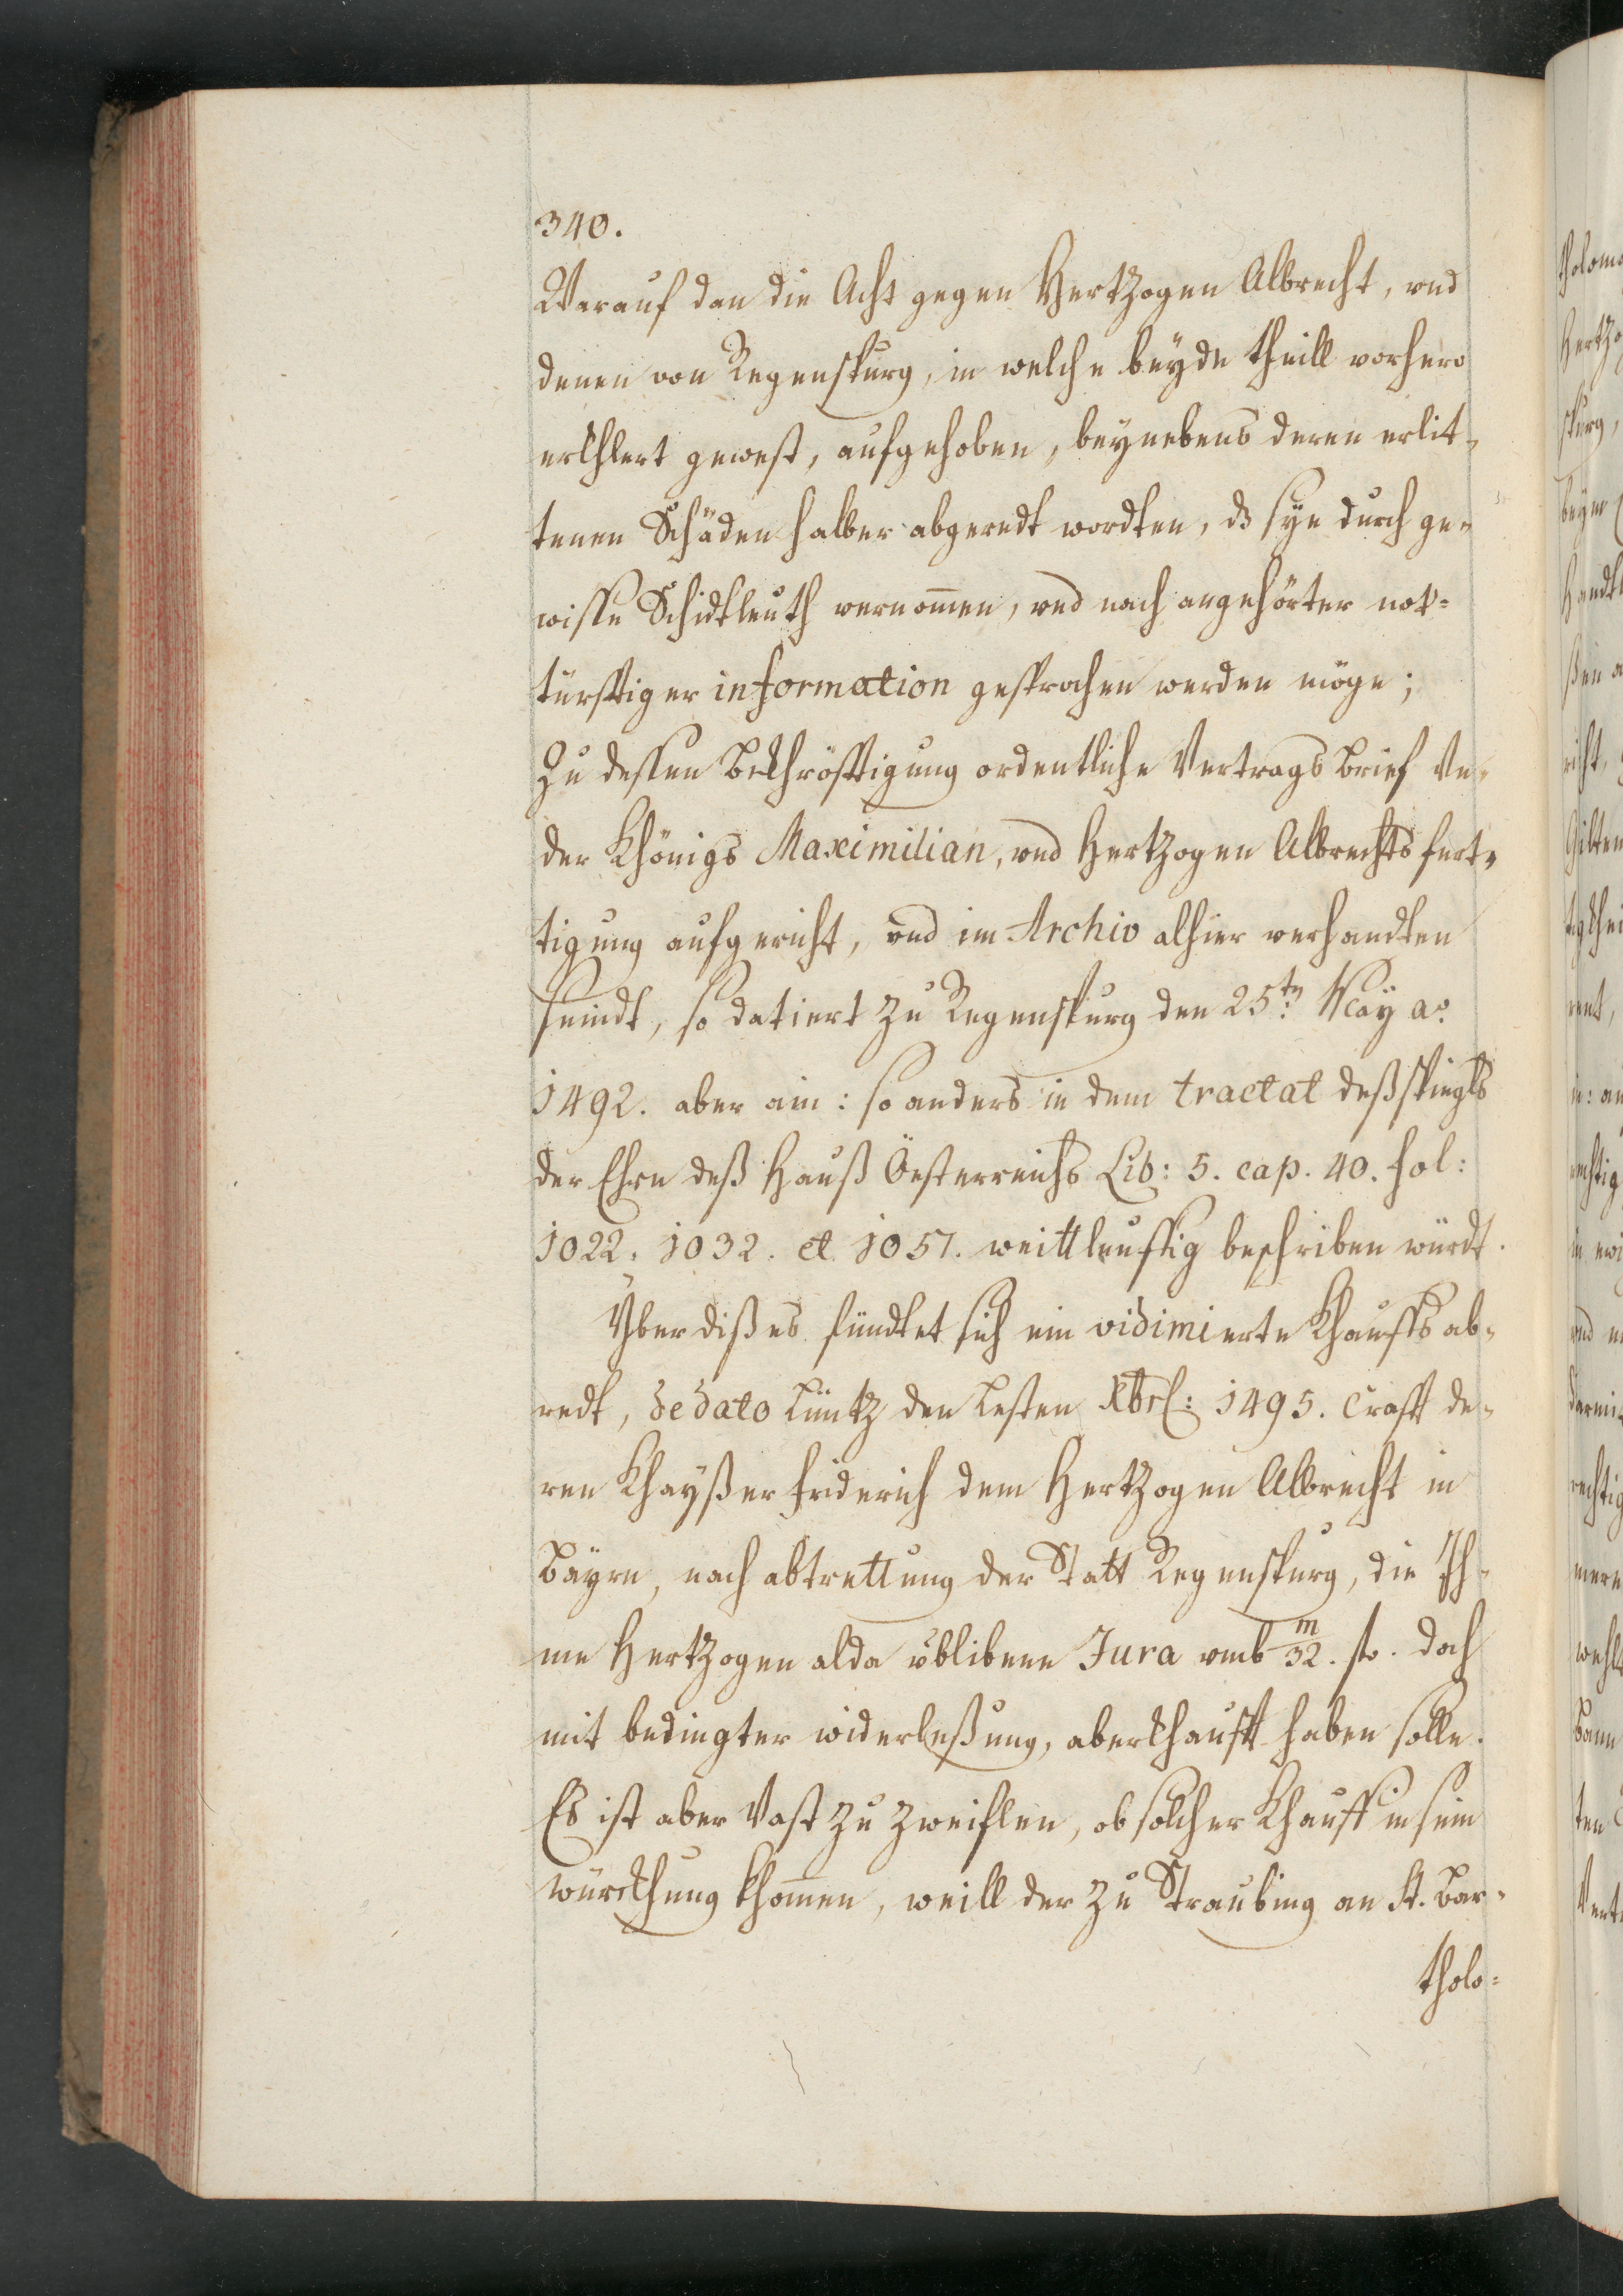 340.
Warauf dan die Acht gegen Hertzogen Albrecht, und
denen von Regenspurg, in welche beyde theill vorhero
erkhlert gewest, aufgehoben, beynebens deren erlit-
tenen Schäden halber abgeredt wordten, dz sye durch ge-
wisse Schidtleuth vernom̄en, und nach angehörter not-
türfftiger information gesprochen werden möge;
Zu dessen Bekhröfftigung ordentliche Vertrags Brief Vn-
der Khönigs Maximilian, und Hertzogen Albrechts fert-
tigung aufgericht, und im Archiv alhier verhandten
seindt, so datiert zu Regenspurg den 25.tn May ao.
1492. aber ain: so anders in dem tractat deß spiegls
der Ehrn deß Hauß Öesterreichs Lib: 5. cap. 40. fol:
1022. 1032. et 1057. weittleuffig beschriben würdt.
Yber dißes fündtet sich ein vidimierte Khauffs ab-
redt, de dato Lüntz den Lesten Xbris: 1495. Crafft de-
ren Khayßer Friderich dem Hertzogen Albrecht in
Bayrn, nach abtrettung der Statt Regenspurg, die Ih-
me Hertzogen alda üblibene Jura umb 32.m fl. doch
mit bedingter widerleßung, aberkhaufft haben solle.
Es ist aber Vast zu zweiflen, ob solcher Khauff in sein
würckhung khom̄en, weill der zu Straubing an St. Bar-
tholo-
tholom
Hertzo
spurg,
beym
Handtl
ßen a
richt,
Gilten
tig khei
rent,
in: an
rechtig
und
darmit
rechtig
mere
wehl
Bann
ten
Vert